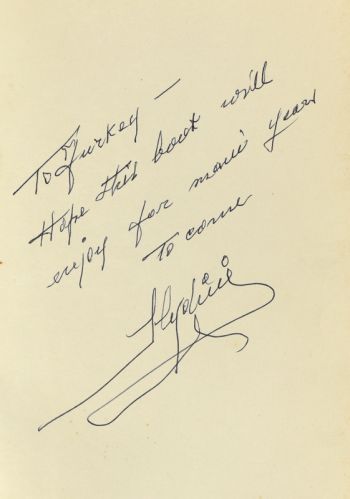 To Turkey —
Hope this book will
enjoy for many years
to come